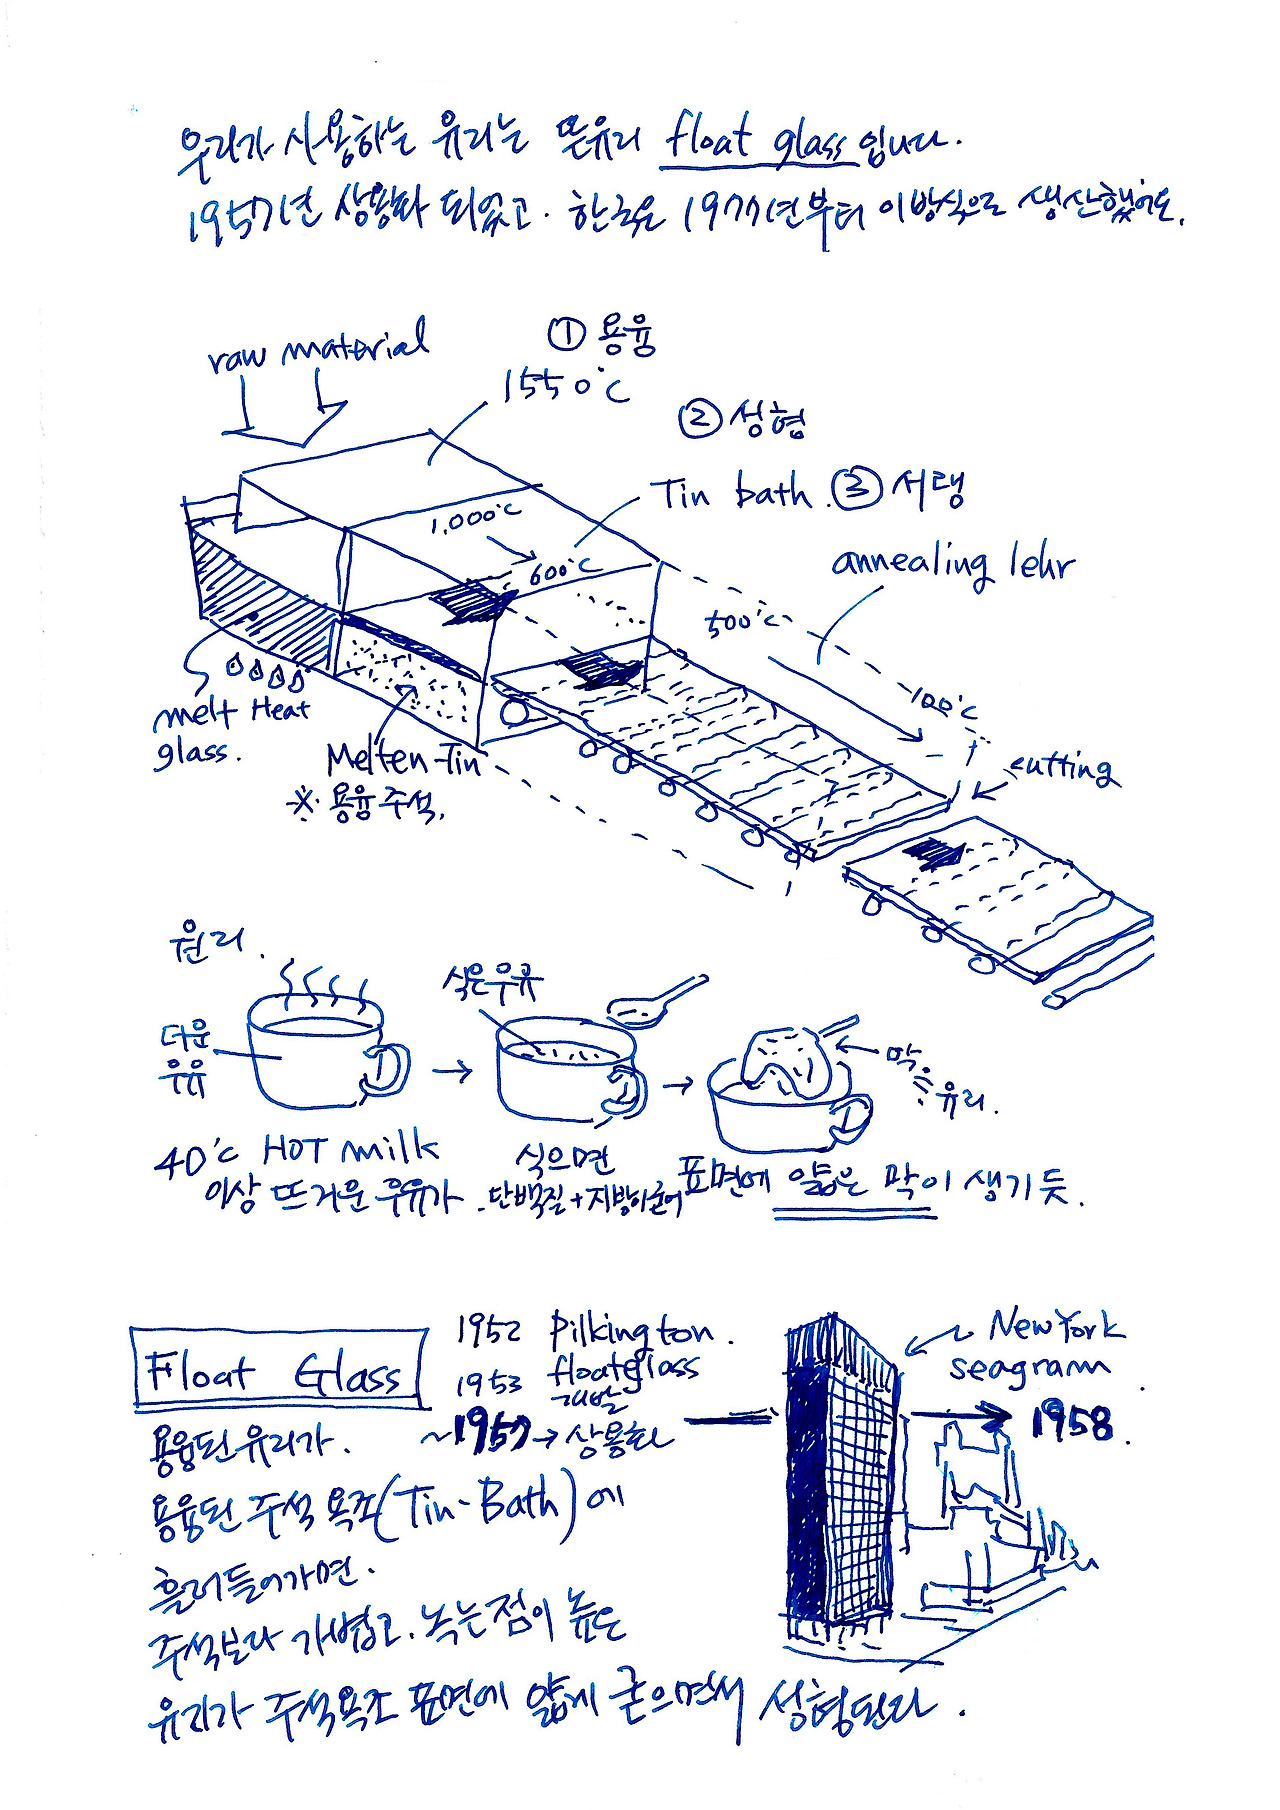 우리가 사용하는 유리는 뜬유리 float glass 입니다.
1957년 상용화 되었고. 한국은 1977년부터 이방식으로 생산했어요.
raw material
① 용융
1550℃
② 성형
Tin bath.
③ 서랭
annealing lehr
1,000℃
600℃
500℃
100℃
cutting
melt glass.
Heat
Melten Tin
※ 용융 주석.
원리.
더운 우유
식은우유
막 ∴ 유리.
40℃ HOT milk
이상 뜨거운 우유가.
식으면
단백질+지방이굳어
표면에 얇은 막이 생기듯.
Float Glass
1952 Pilkington.
1953 floatglass
개발
~1957→ 상용화
New York
seagram
1958.
용융된 유리가.
용융된 주석 욕조(Tin-Bath)에
흘러들어가면.
주석보다 가볍고. 녹는점이 높은
유리가 주석욕조 표면에 얇게 굳으면서 성형된다.